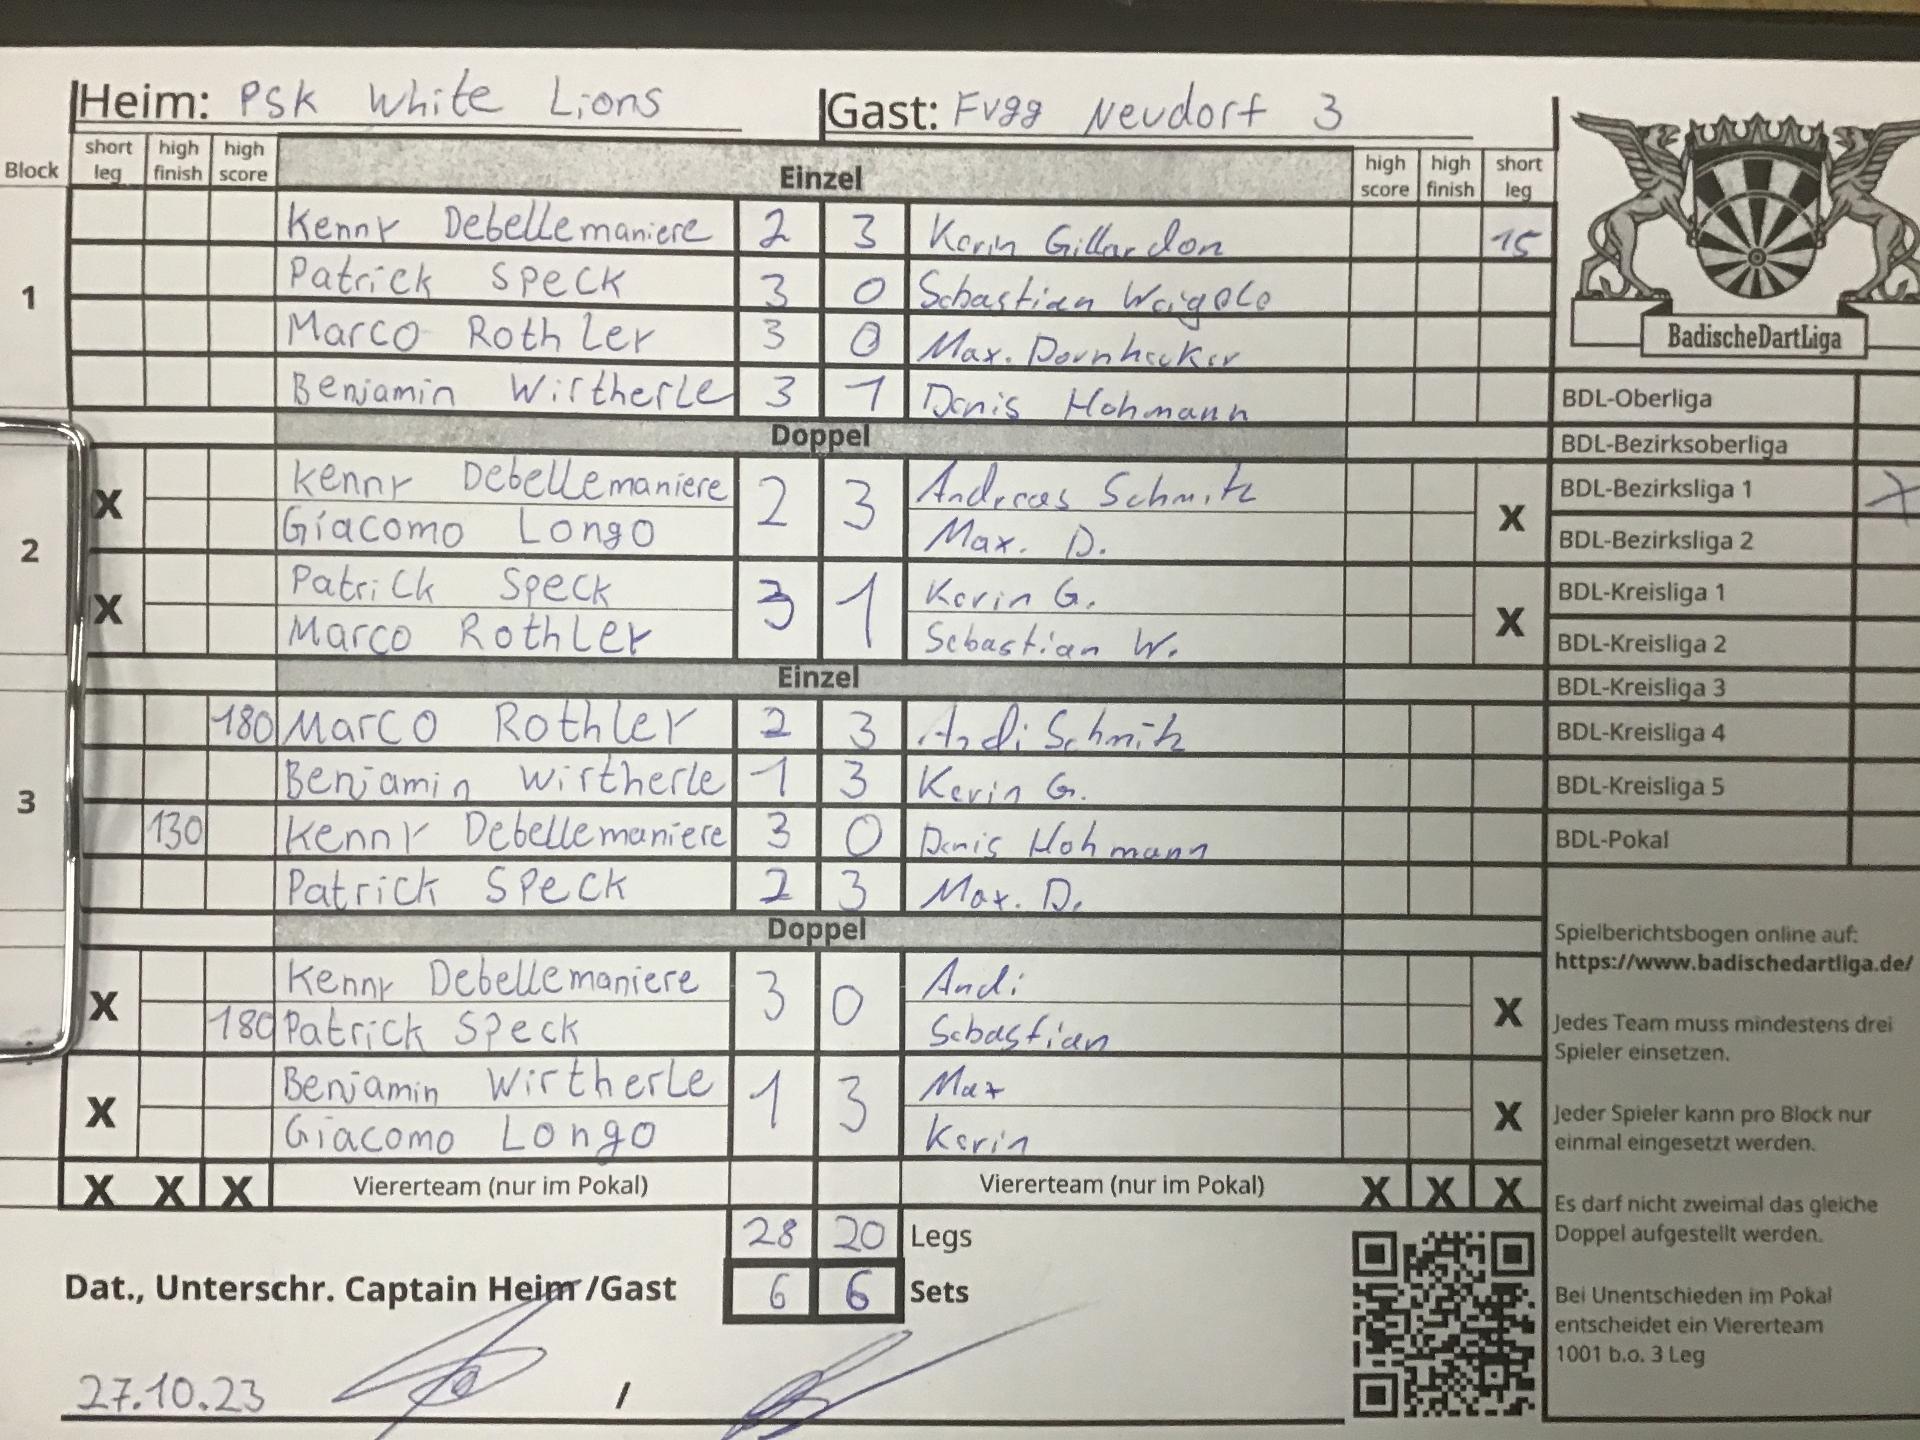 Heim: PSK White Lions Gast: FVgg Neudorf 3
Block short leg high finish high score Einzel high score high finish short leg
1
Kenny Debellemaniere 2 3 Kevin Gillardon 15
Patrick Speck 3 0 Sebastian
Marco Rothler 3 0 Max. Dornhecker
Benjamin Wirtherle 3 1 Denis Hohmann
Doppel
2
X Kenny Debellemaniere 2 3 Andreas Schmitz X
Giacomo Longo Max. D.
X Patrick Speck 3 1 Kevin G. X
Marco Rothler Sebastian W.
Einzel
3
180 Marco Rothler 2 3 Andi Schmitz
Benjamin Wirtherle 1 3 Kevin G.
130 Kenny Debellemaniere 3 0 Denis Hohmann
Patrick Speck 2 3 Max. D.
Doppel
X Kenny Debellemaniere 3 0 Andi X
180 Patrick Speck Sebastian
X Benjamin Wirtherle 1 3 Max X
Giacomo Longo Kevin
X X X Viererteam (nur im Pokal) Viererteam (nur im Pokal) X X X
28 20 Legs
Dat., Unterschr. Captain Heim /Gast 6 6 Sets
27.10.23 /
BadischeDartLiga
BDL-Oberliga
BDL-Bezirksoberliga
BDL-Bezirksliga 1 X
BDL-Bezirksliga 2
BDL-Kreisliga 1
BDL-Kreisliga 2
BDL-Kreisliga 3
BDL-Kreisliga 4
BDL-Kreisliga 5
BDL-Pokal
Spielberichtsbogen online auf:
https://www.badischedartliga.de/
Jedes Team muss mindestens drei
Spieler einsetzen.
Jeder Spieler kann pro Block nur
einmal eingesetzt werden.
Es darf nicht zweimal das gleiche
Doppel aufgestellt werden.
Bei Unentschieden im Pokal
entscheidet ein Viererteam
1001 b.o. 3 Leg